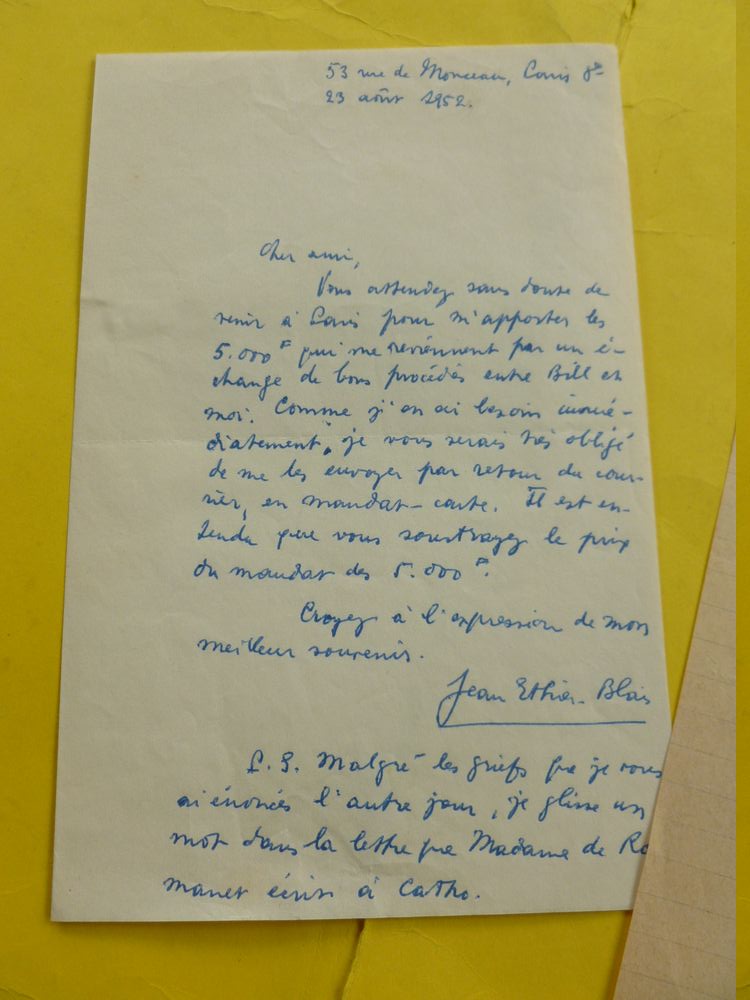 53 rue de Monceau, Paris 8e
23 août 1952.
Cher ami,
Vous attendez sans doute de
venir à Paris pour m'apporter les
5.000 F qui me reviennent par un é-
change de bons procédés entre Bill et
moi. Comme j'en ai besoin immé-
diatement, je vous serais très obligé
de me les envoyer par retour du cour-
rier, en mandat-carte. Il est en-
tendu que vous soustrayez le prix
du mandat des 5.000 F.
Croyez à l'expression de mon
meilleur souvenir.
Jean Ethier-Blais
P.S. Malgré les griefs que je vous
ai énoncés l'autre jour, je glisse un
mot dans la lettre que Madame de Ro
manet écrit à Catho.